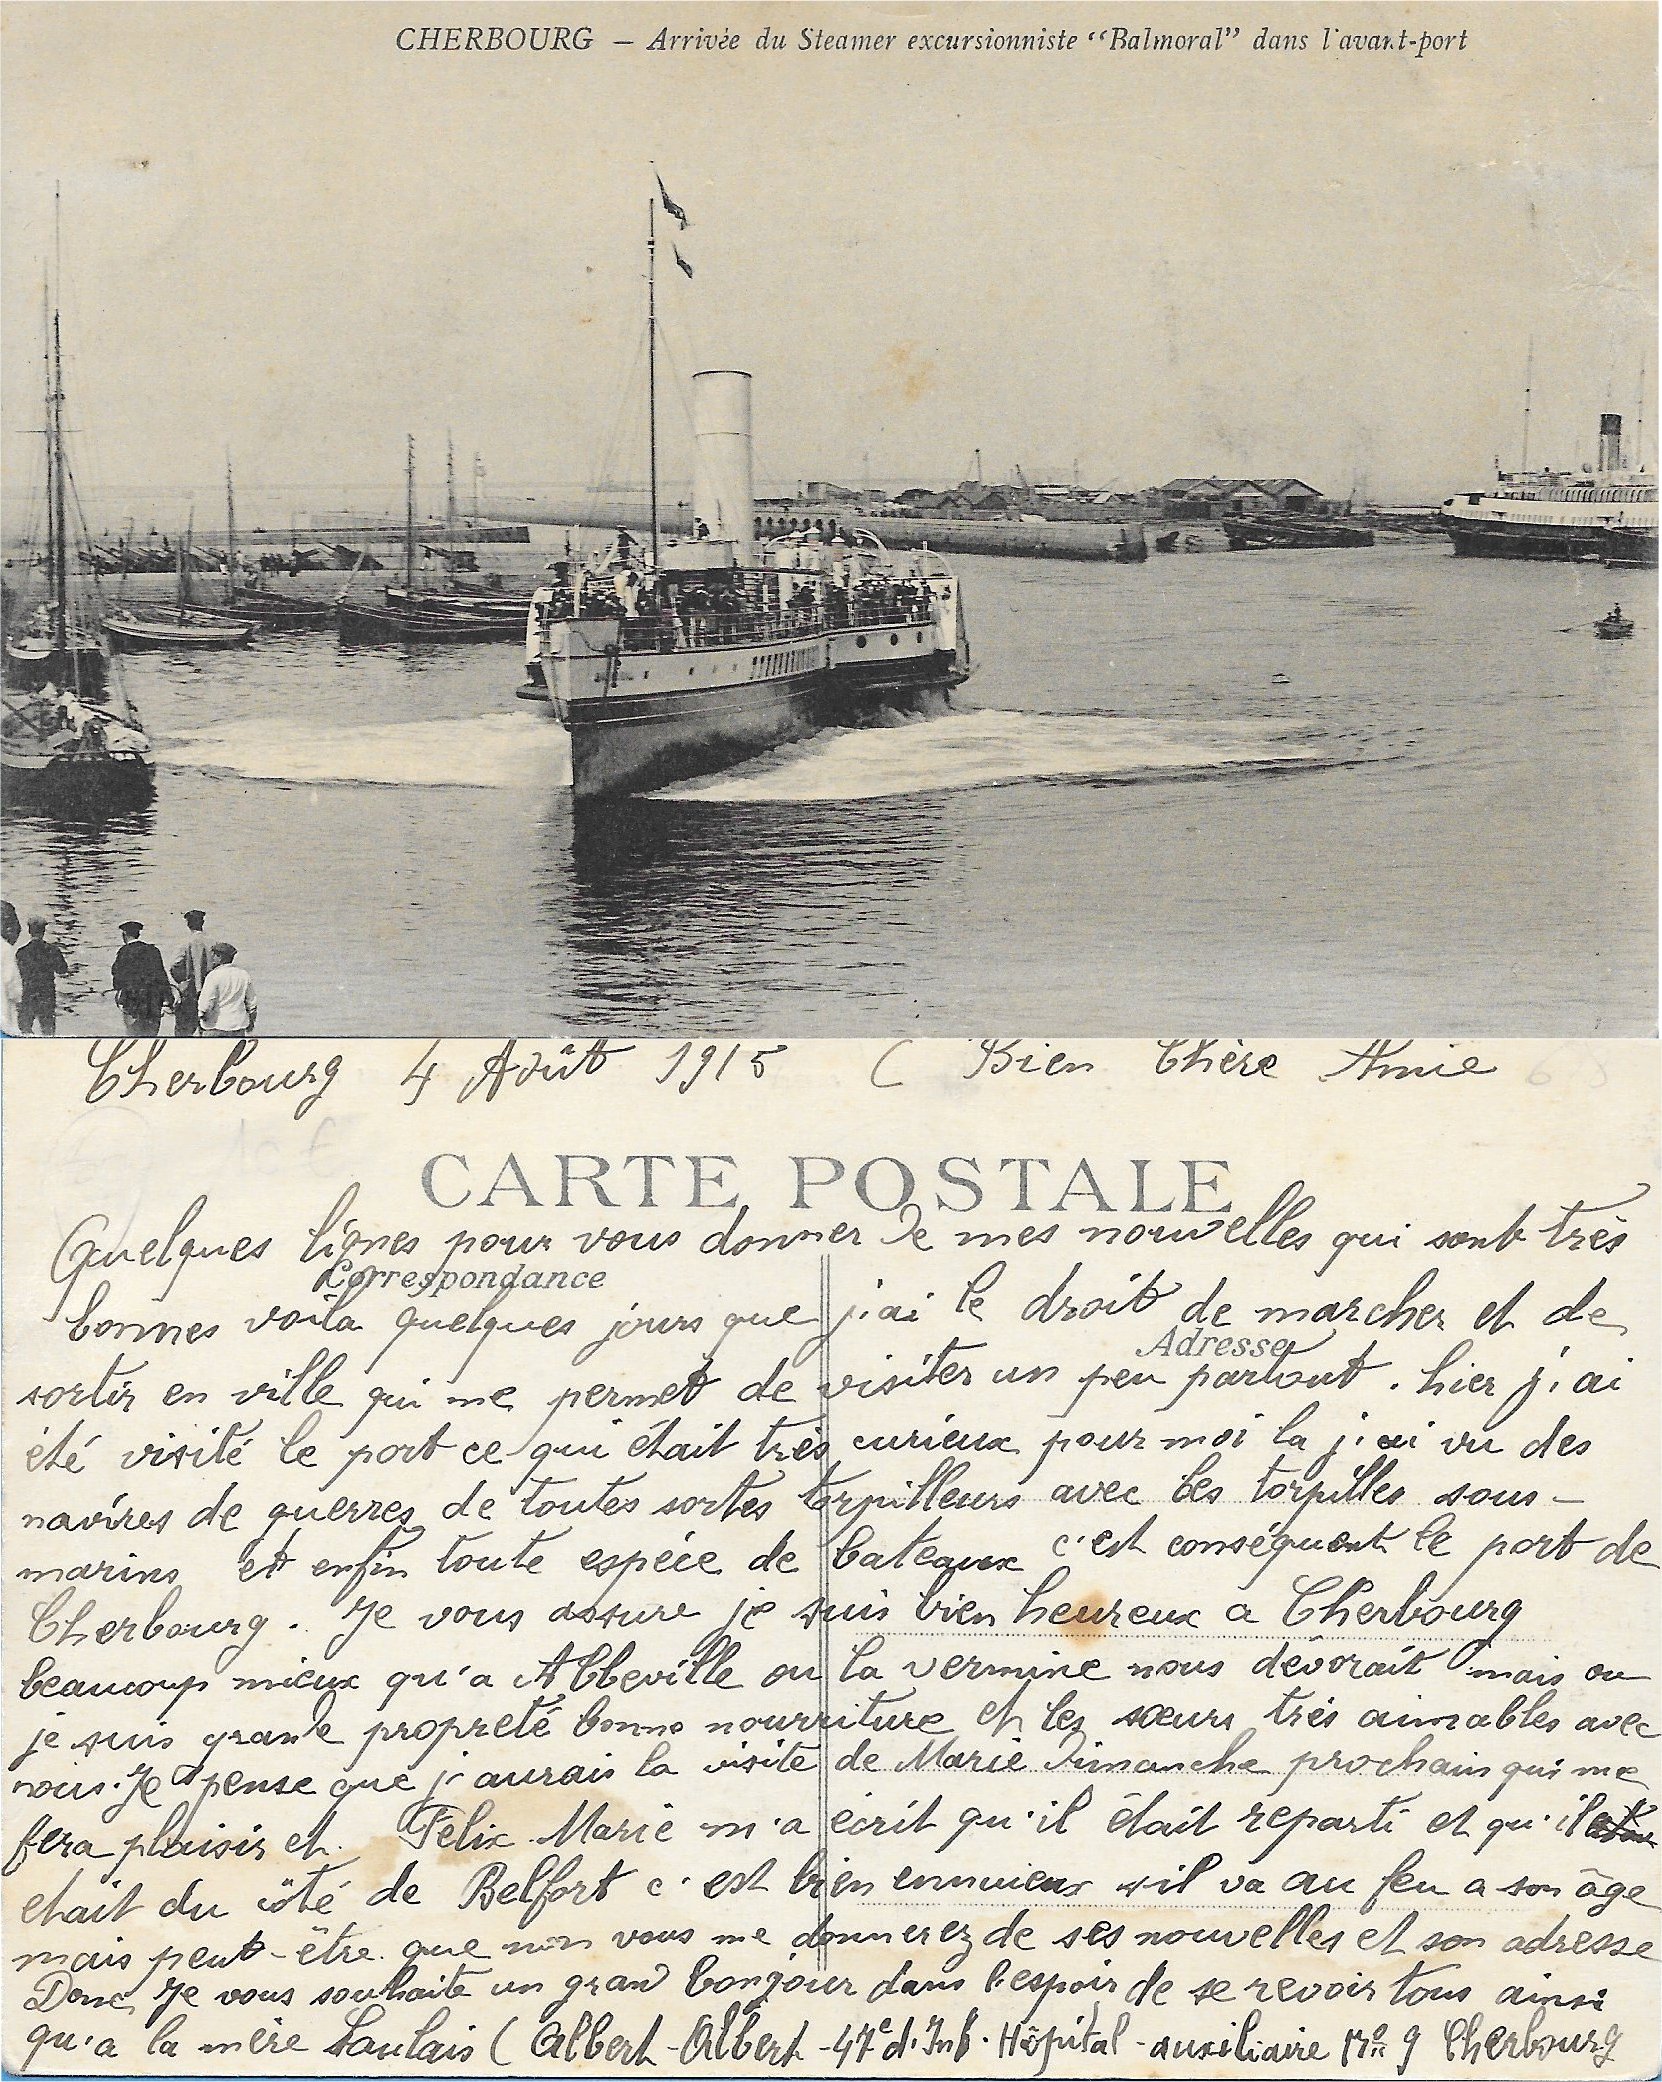 CHERBOURG – Arrivée du Steamer excursionniste "Balmoral" dans l'avant-port
Cherbourg 4 Août 1915 ( Bien Chère Amie
CARTE POSTALE
Quelques lignes pour vous donner de mes nouvelles qui sont très
Correspondance
bonnes voila quelques jours que j'ai le droit de marcher et de
Adresse
sortir en ville qui me permet de visiter un peu partout. hier j'ai
été visité le port ce qui était très curieux pour moi la j'ai vu des
navires de guerres de toutes sortes torpilleurs avec les torpilles sous-
marins et enfin toute espéce de bateaux c'est conséquent le port de
Cherbourg. Je vous assure je suis bien heureux a Cherbourg
beaucoup mieux qu'a Abbeville ou la vermine nous dévorait mais ou
je suis grande propreté bonne nourriture et les sœurs très aimables avec
nous. Je pense que j'aurais la visite de Marie Dimanche prochain qui me
fera plaisir et. Felix Marie m'a écrit qu'il était reparti et qu'il
etait du côté de Belfort c'est bien ennuieux s'il va au feu a son âge
mais peut-être que non vous me donnerez de ses nouvelles et son adresse
Donc Je vous souhaite un grand bonjour dans l'espoir de se revoir tous ainsi
qu'a la mère Laulais ( Albert - Albert - 47e d'Inf. Hôpital - auxiliaire No 9 Cherbourg